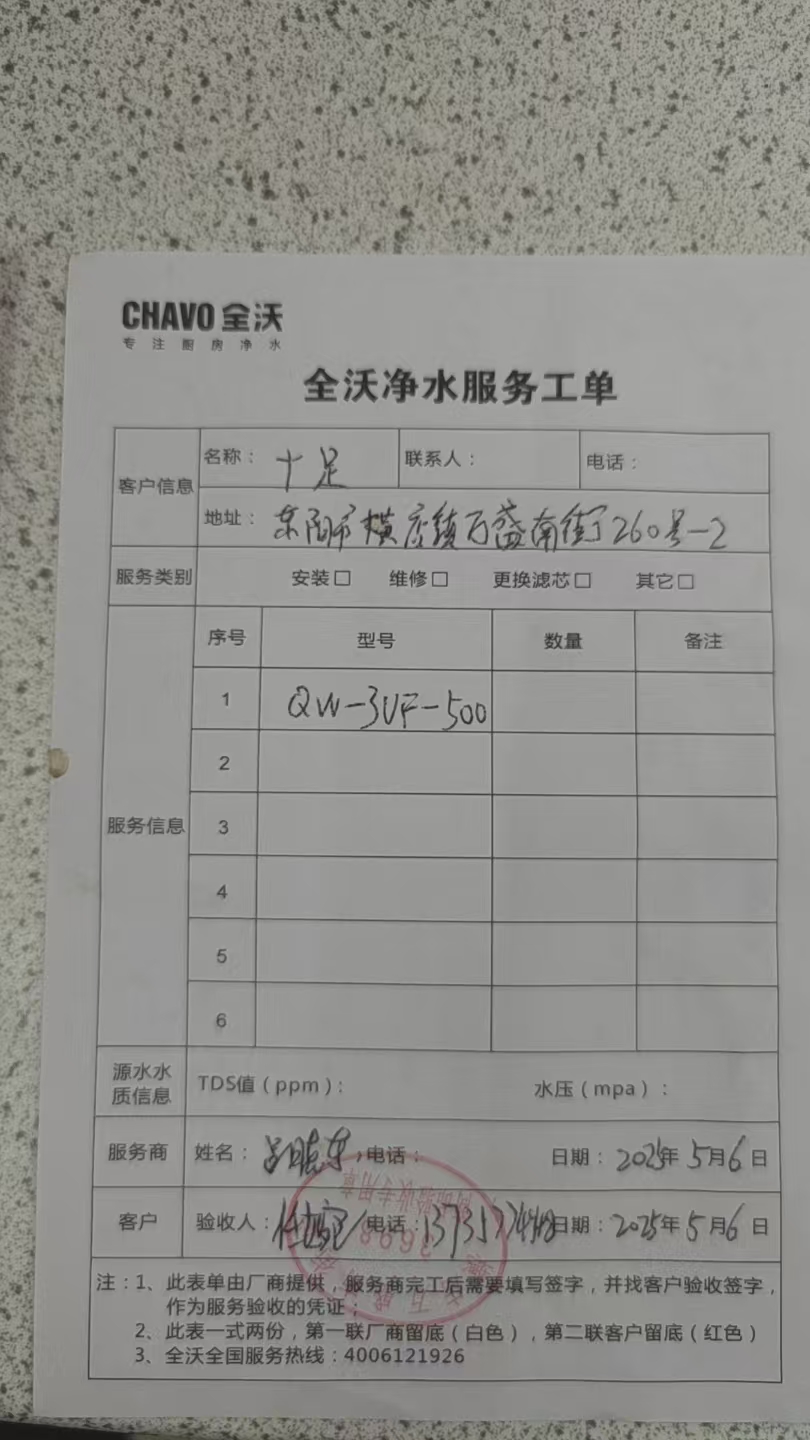 CHAVO 全沃
专注厨房净水
全沃净水服务工单
客户信息
名称： 十足 联系人： 电话：
地址： 东阳市横店镇万盛南街260号-2
服务类别 安装□ 维修□ 更换滤芯□ 其它□
服务信息
序号 型号 数量 备注
1 QW-3UF-500
2
3
4
5
6
源水水质信息 TDS值（ppm）： 水压（mpa）：
服务商 姓名： 电话： 日期： 2025年 5月6日
客户 验收人： 电话： 日期： 2025年 5月6日
注：1、此表单由厂商提供，服务商完工后需要填写签字，并找客户验收签字，
作为服务验收的凭证；
2、此表一式两份，第一联厂商留底（白色），第二联客户留底（红色）
3、全沃全国服务热线：4006121926